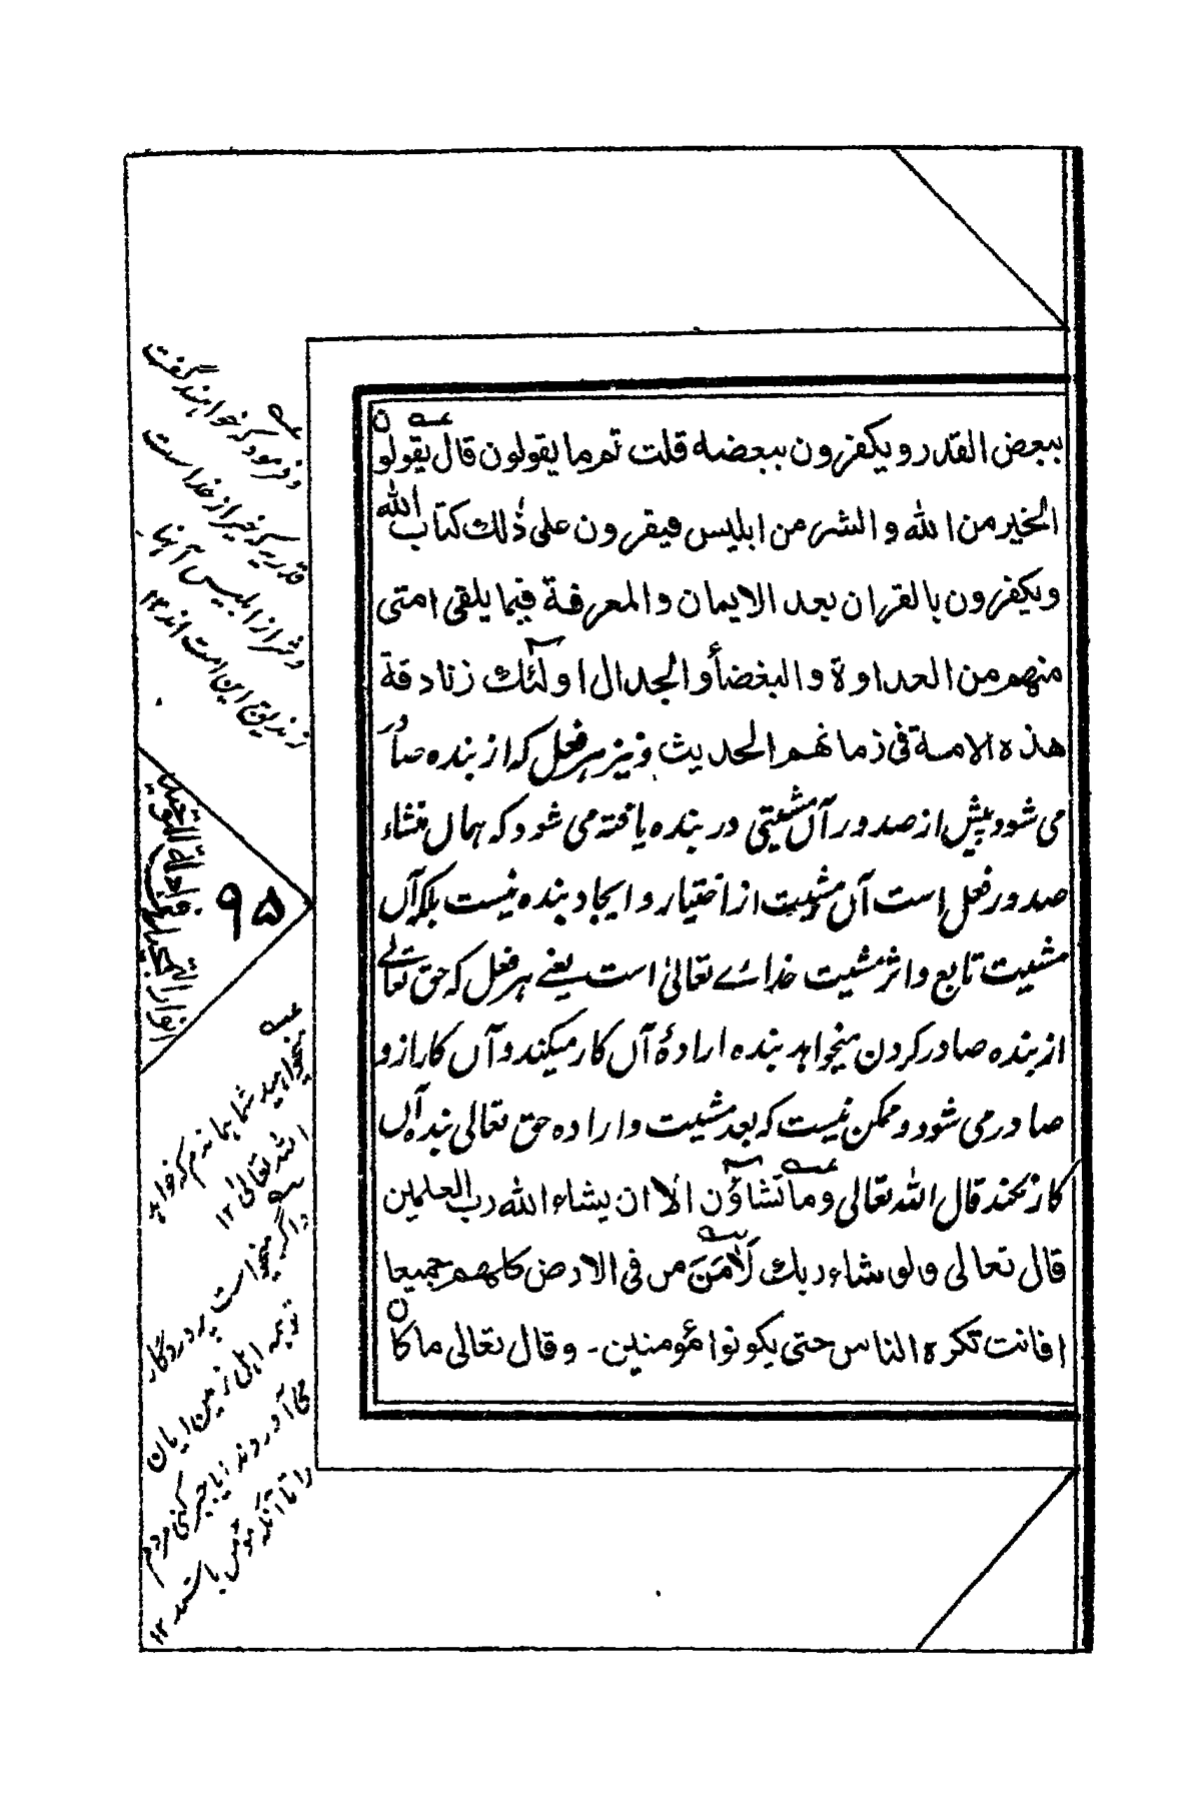 ببعض القدر ويكفرون ببعضه قلت ثم ما يقولون قال يقولون
الخير من الله والشر من ابليس فيقرون على ذٰلك كتاب الله
ويكفرون بالقران بعد الايمان والمعرفة فيما يلقى امتى
منهم من العداوة والبغضأ والجدال اولٓئك زنادقة
هذه الامة فى زمانهم الحديث ونيز هر فعل كه از بنده صادر
می شود پیش از صدور آں مشیتی در بنده یافته می شود که هماں منشاء
صدور فعل است آں مشیت از اختیار و ایجاد بنده نیست بلکه آں
مشیت تابع و اثر مشیت خدائے تعالیٰ است یعنے هر فعل که حق تعالےٰ
از بنده صادر کردن میخواهد بنده ارادۂ آں کار میکند و آں کار ازو
صادر می شود و ممکن نیست که بعد مشیت و اراده حق تعالی بنده آں
کار نکند قال الله تعالی وما تشاؤن الا ان یشاء الله رب العلمین
قال تعالى ولو شاء ربك لَاٰمَنَ من فى الارض كلهم جميعا
افانت تكره الناس حتى يكونوا مؤمنين۔ وقال تعالى ما كان
عـه
و فرمود که خواهند گفت
قدریه که خیر از خدا است
و شر از ابلیس آنها
زندیق این امت اند ۱۲
۹۵
انوار البهیه
عـه
نمیخواهید شما مانند مردم که خواهد
الله تعالیٰ ۱۲
و اگر میخواست پروردگار
تو همه اهل زمین ایمان
می آوردند ایا جبر کنی مردم
را تا آنکه مؤمن باشند ۱۲